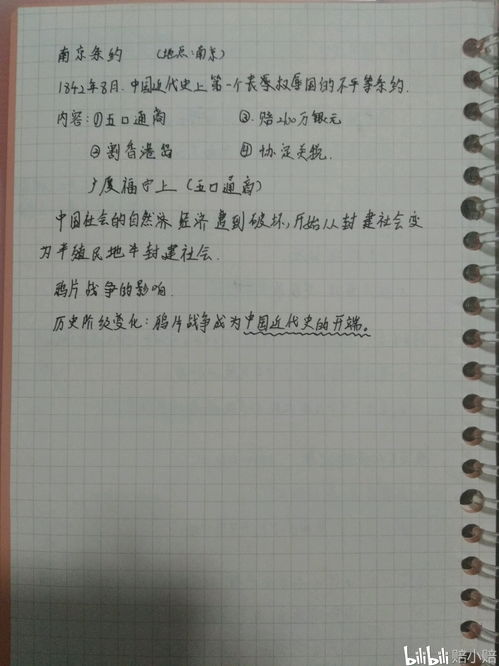 南京条约 (地点:南京)
1842年8月.中国近代史上第一个丧权辱国的不平等条约.
内容:①五口通商 ③.赔2100万银元
②割香港岛 ④ 协定关税.
广厦福宁上(五口通商)
中国社会的自然济 经济 遭到破坏,开始从封建社会变
为半殖民地半封建社会.
鸦片战争的影响.
历史阶级变化:鸦片战争成为中国近代史的开端。
bilibili 赔小赔